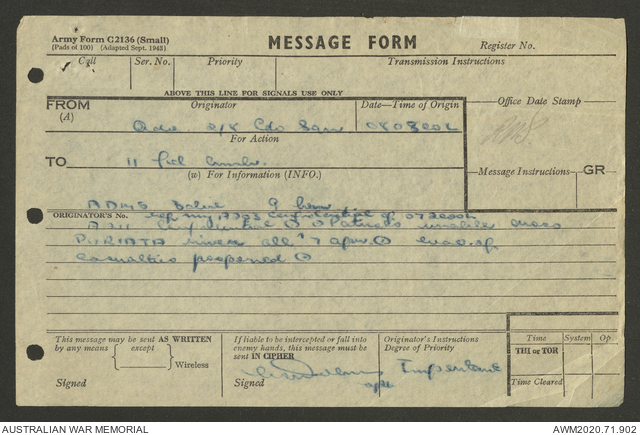 Army Form C2136 (Small)
(Pads of 100) (Adapted Sept. 1943)
MESSAGE FORM
Register No.
Call
Ser. No.
Priority
Transmission Instructions
ABOVE THIS LINE FOR SIGNALS USE ONLY
FROM
(A)
Originator
Date—Time of Origin
Office Date Stamp
2/8 Cdo Sqn
For Action
TO
11 Fd
(w) For Information (INFO.)
Message Instructions
GR
ADMS
ORIGINATOR'S No.
ref my confidential of
confidential Patrols unable cross
PURIATA river
casualties postponed
This message may be sent AS WRITTEN
by any means
except
Wireless
Signed
If liable to be intercepted or fall into
enemy hands, this message must be
sent IN CIPHER
Signed
Originator's Instructions
Degree of Priority
Important
Time
System
Op.
THI or TOR
Time Cleared
AUSTRALIAN WAR MEMORIAL
AWM2020.71.902